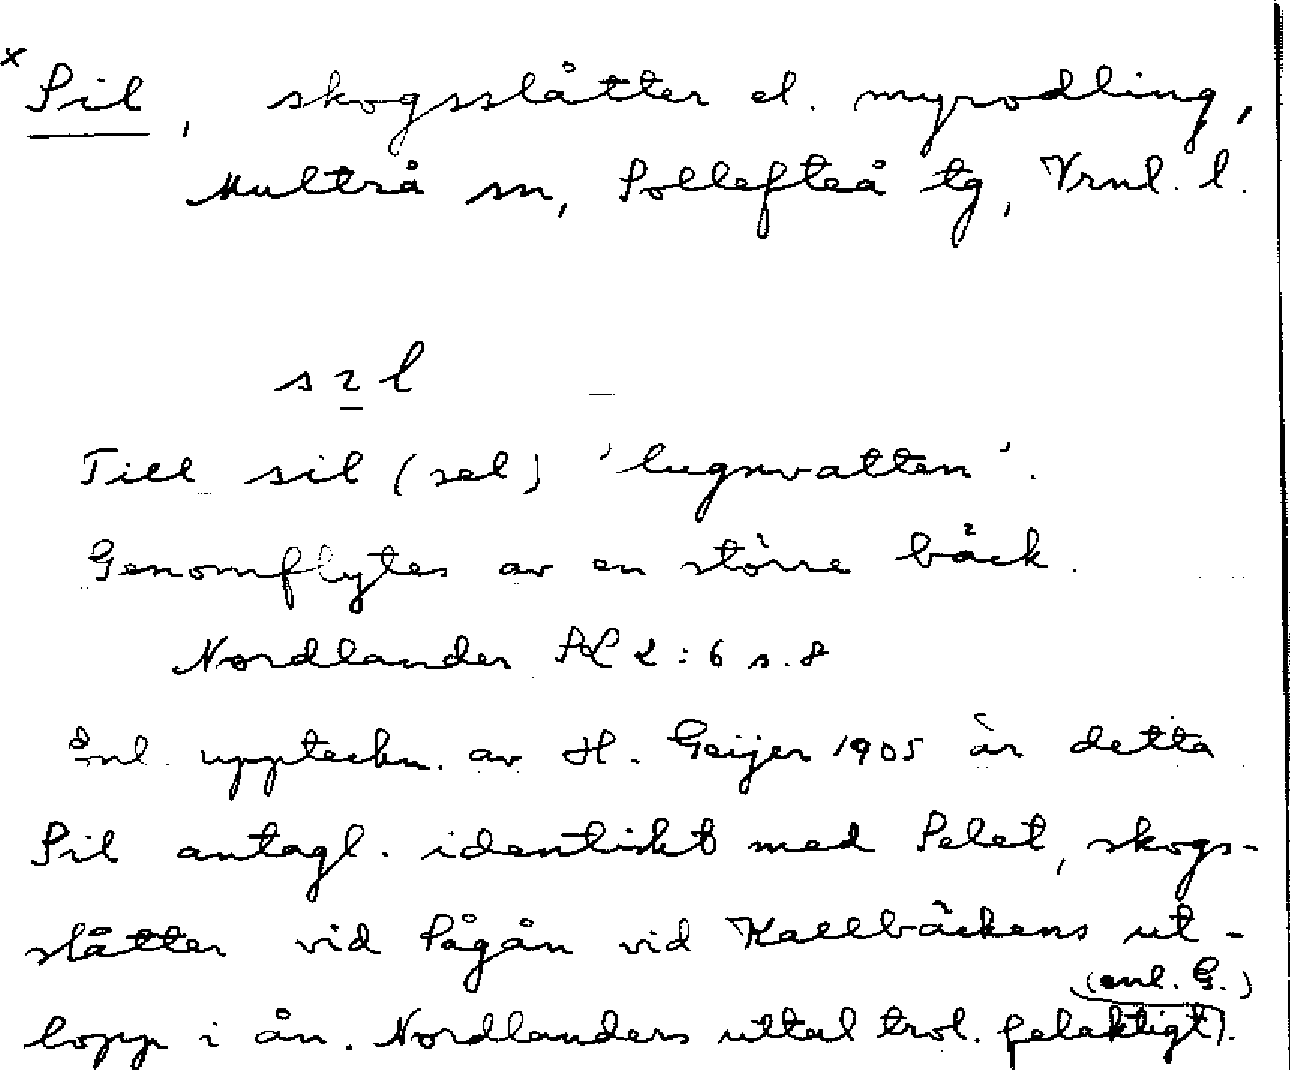 x Sil, skogsslåtter el. myrodling,
Multrå sn, Sollefteå tg, Vrnl. l.
s ɿ l
Till sil (sel) 'lugnvatten'.
Genomflytes av en större bäck.
Nordlander 2:6 s. 8
Enl. uppteckn. av H. Geijer 1905 är detta
Sil antagl. identiskt med Selet, skogs-
slåtter vid Sågån vid Kallbäckens ut-
(enl. G.)
lopp i ån. Nordlanders uttal trol. felaktigt).